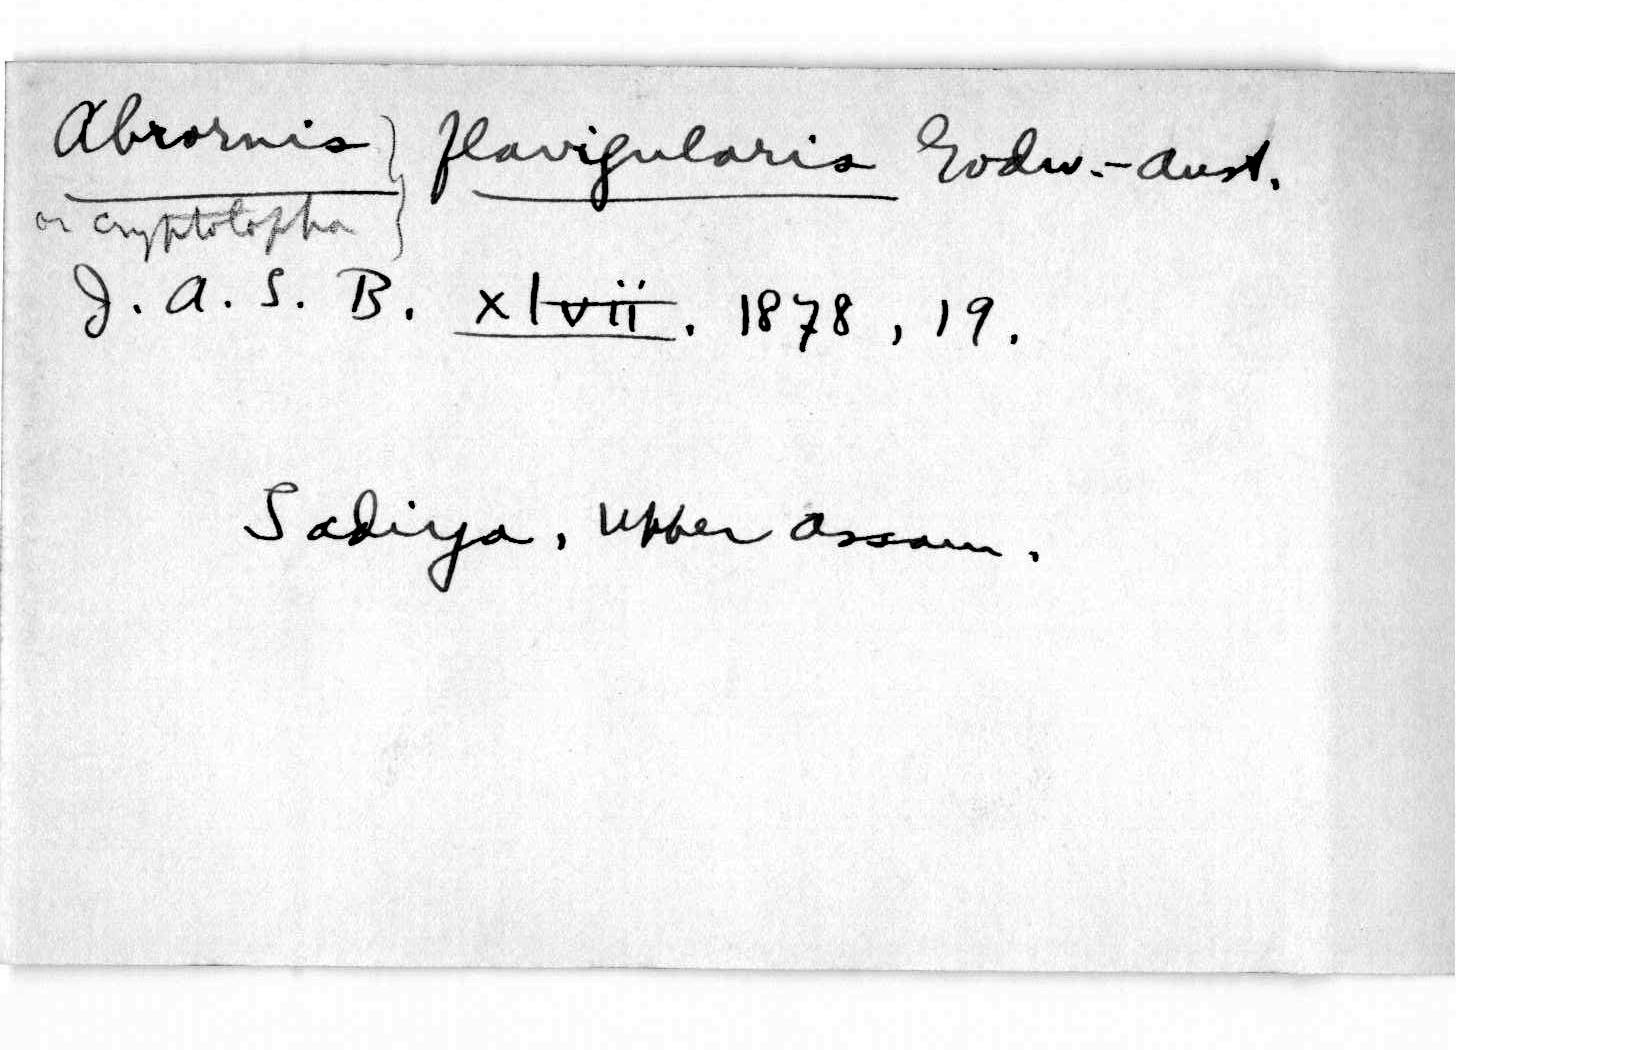 Abrornis } flavigularis Godw.-Aust.
or cryptolopha }
J. A. S. B. xlvii. 1878, 19.
Sadiya, Upper Assam.